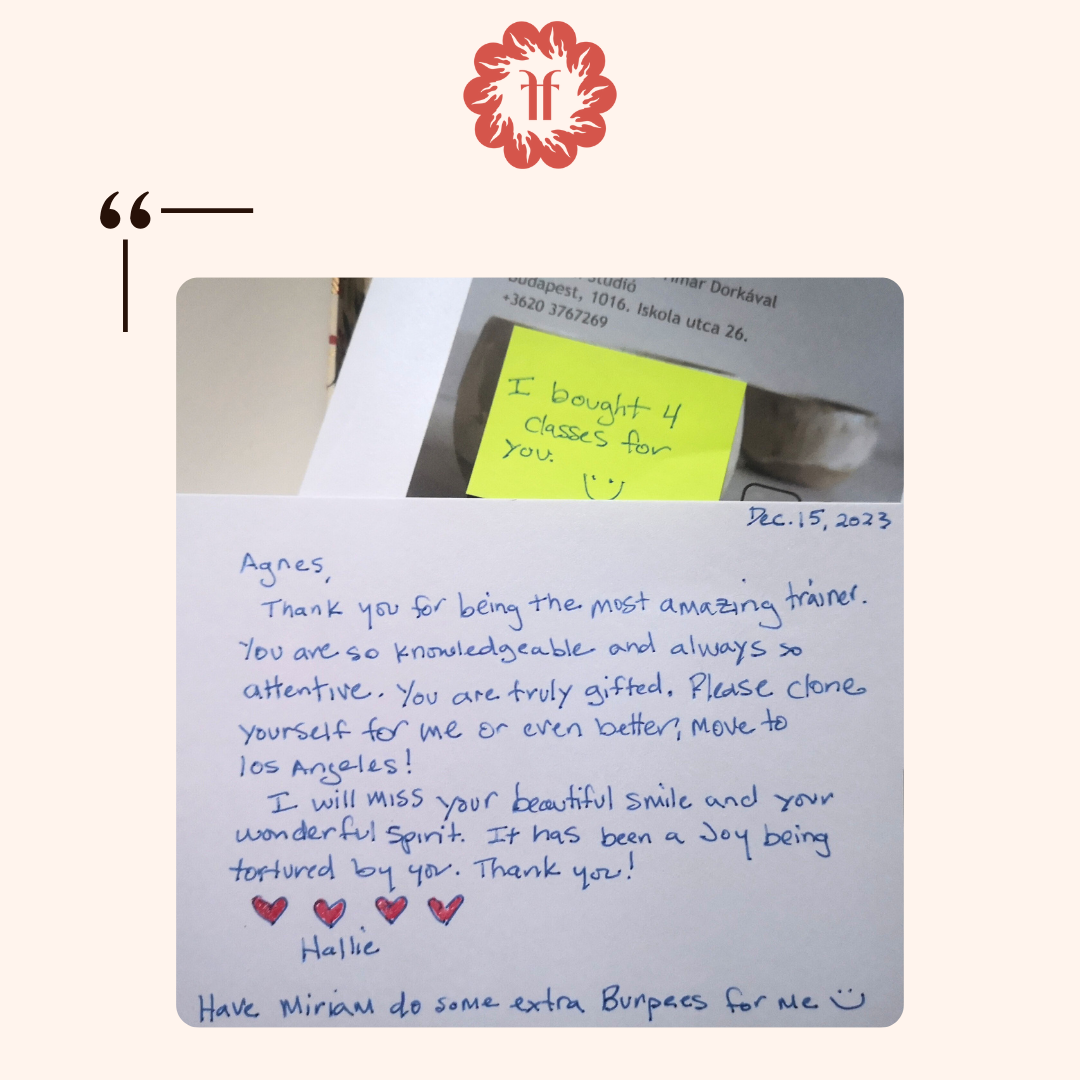 ff
“
Studió
Timár Dorkával
Budapest, 1016. Iskola utca 26.
+3620 3767269
I bought 4
classes for
you.
Dec. 15, 2023
Agnes,
Thank you for being the most amazing trainer.
You are so knowledgeable and always so
attentive. You are truly gifted. Please clone
yourself for me or even better, move to
los Angeles!
I will miss your beautiful smile and your
wonderful spirit. It has been a Joy being
tortured by you. Thank you!
Hallie
Have Miriam do some extra Burpees for me